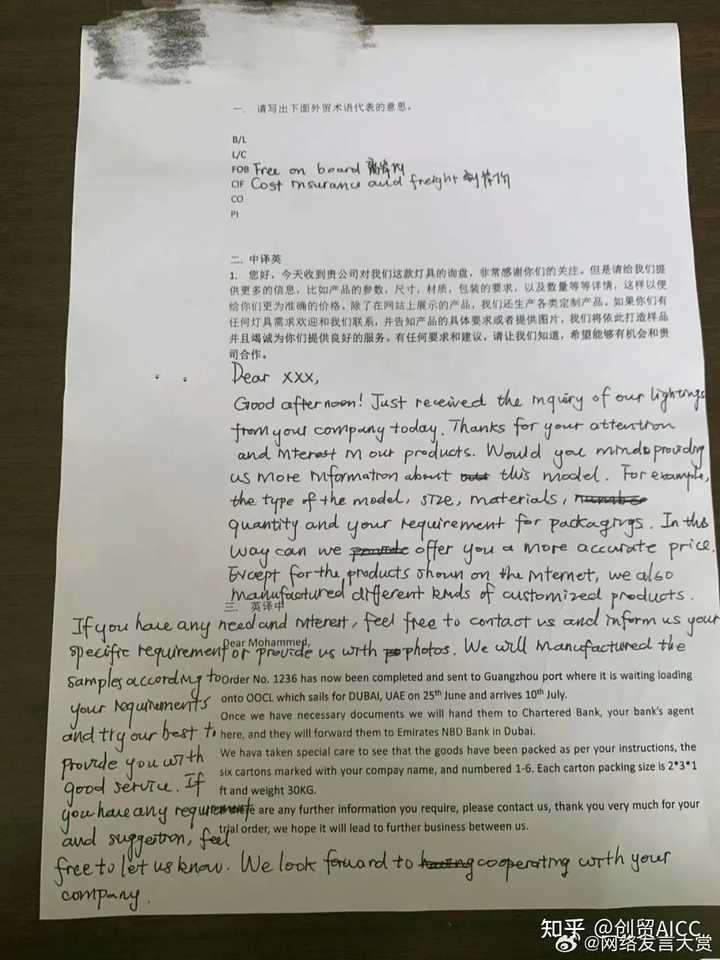 一. 请写出下面外贸术语代表的意思。
B/L
L/C
FOB Free on board
CIF Cost insurance and freight 到岸价
CO
PI
二. 中译英
1. 您好，今天收到贵公司对我们这款灯具的询盘，非常感谢你们的关注。但是请给我们提
供更多的信息，比如产品的参数，尺寸，材质，包装的要求，以及数量等等详情，这样以便
给你们更为准确的价格。除了在网站上展示的产品，我们还生产各类定制产品。如果你们有
任何灯具需求欢迎和我们联系，并告知产品的具体要求或者提供图片，我们将依此打造样品
并且竭诚为你们提供良好的服务。有任何要求和建议，请让我们知道，希望能够有机会和贵
司合作。
Dear xxx,
Good afternoon! Just received the inquiry of our lightings
from your company today. Thanks for your attention
and interest in our products. Would you mind providing
us more information about this model. For example,
the type of the model, size, materials,
quantity and your requirement for packagings. In this
way can we offer you a more accurate price.
Except for the products shown on the internet, we also
manufactured different kinds of customized products.
三. 英译中
If you have any need and interest, feel free to contact us and inform us your
Dear Mohammed,
specific requirement or provide us with photos. We will manufactured the
samples according to
your requirements
and try our best to
provide you with
good service. If
you have any requirement
and suggestion, feel
free to let us know. We look forward to cooperating with your
company.
Order No. 1236 has now been completed and sent to Guangzhou port where it is waiting loading
onto OOCL which sails for DUBAI, UAE on 25th June and arrives 10th July.
Once we have necessary documents we will hand them to Chartered Bank, your bank's agent
here, and they will forward them to Emirates NBD Bank in Dubai.
We hava taken special care to see that the goods have been packed as per your instructions, the
six cartons marked with your compay name, and numbered 1-6. Each carton packing size is 2*3*1
ft and weight 30KG.
are any further information you require, please contact us, thank you very much for your
trial order, we hope it will lead to further business between us.
知乎 @创贸AICC
@网络发言大赏